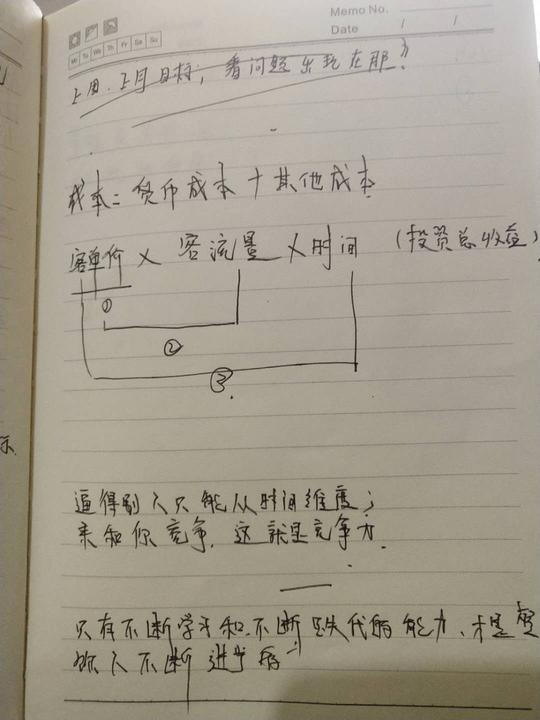 Memo No.
Date / /
Mo Tu We Th Fr Sa Su
上周.上月目标,看问题出现在那?
成本=货币成本+其他成本
客单价×客流量×时间 (投资总收益)
①
②
③
逼得别人只能从时间维度;
来和你竞争,这就是竞争力.
只有不断学习和不断迭代的能力、才是
人不断进步的
示